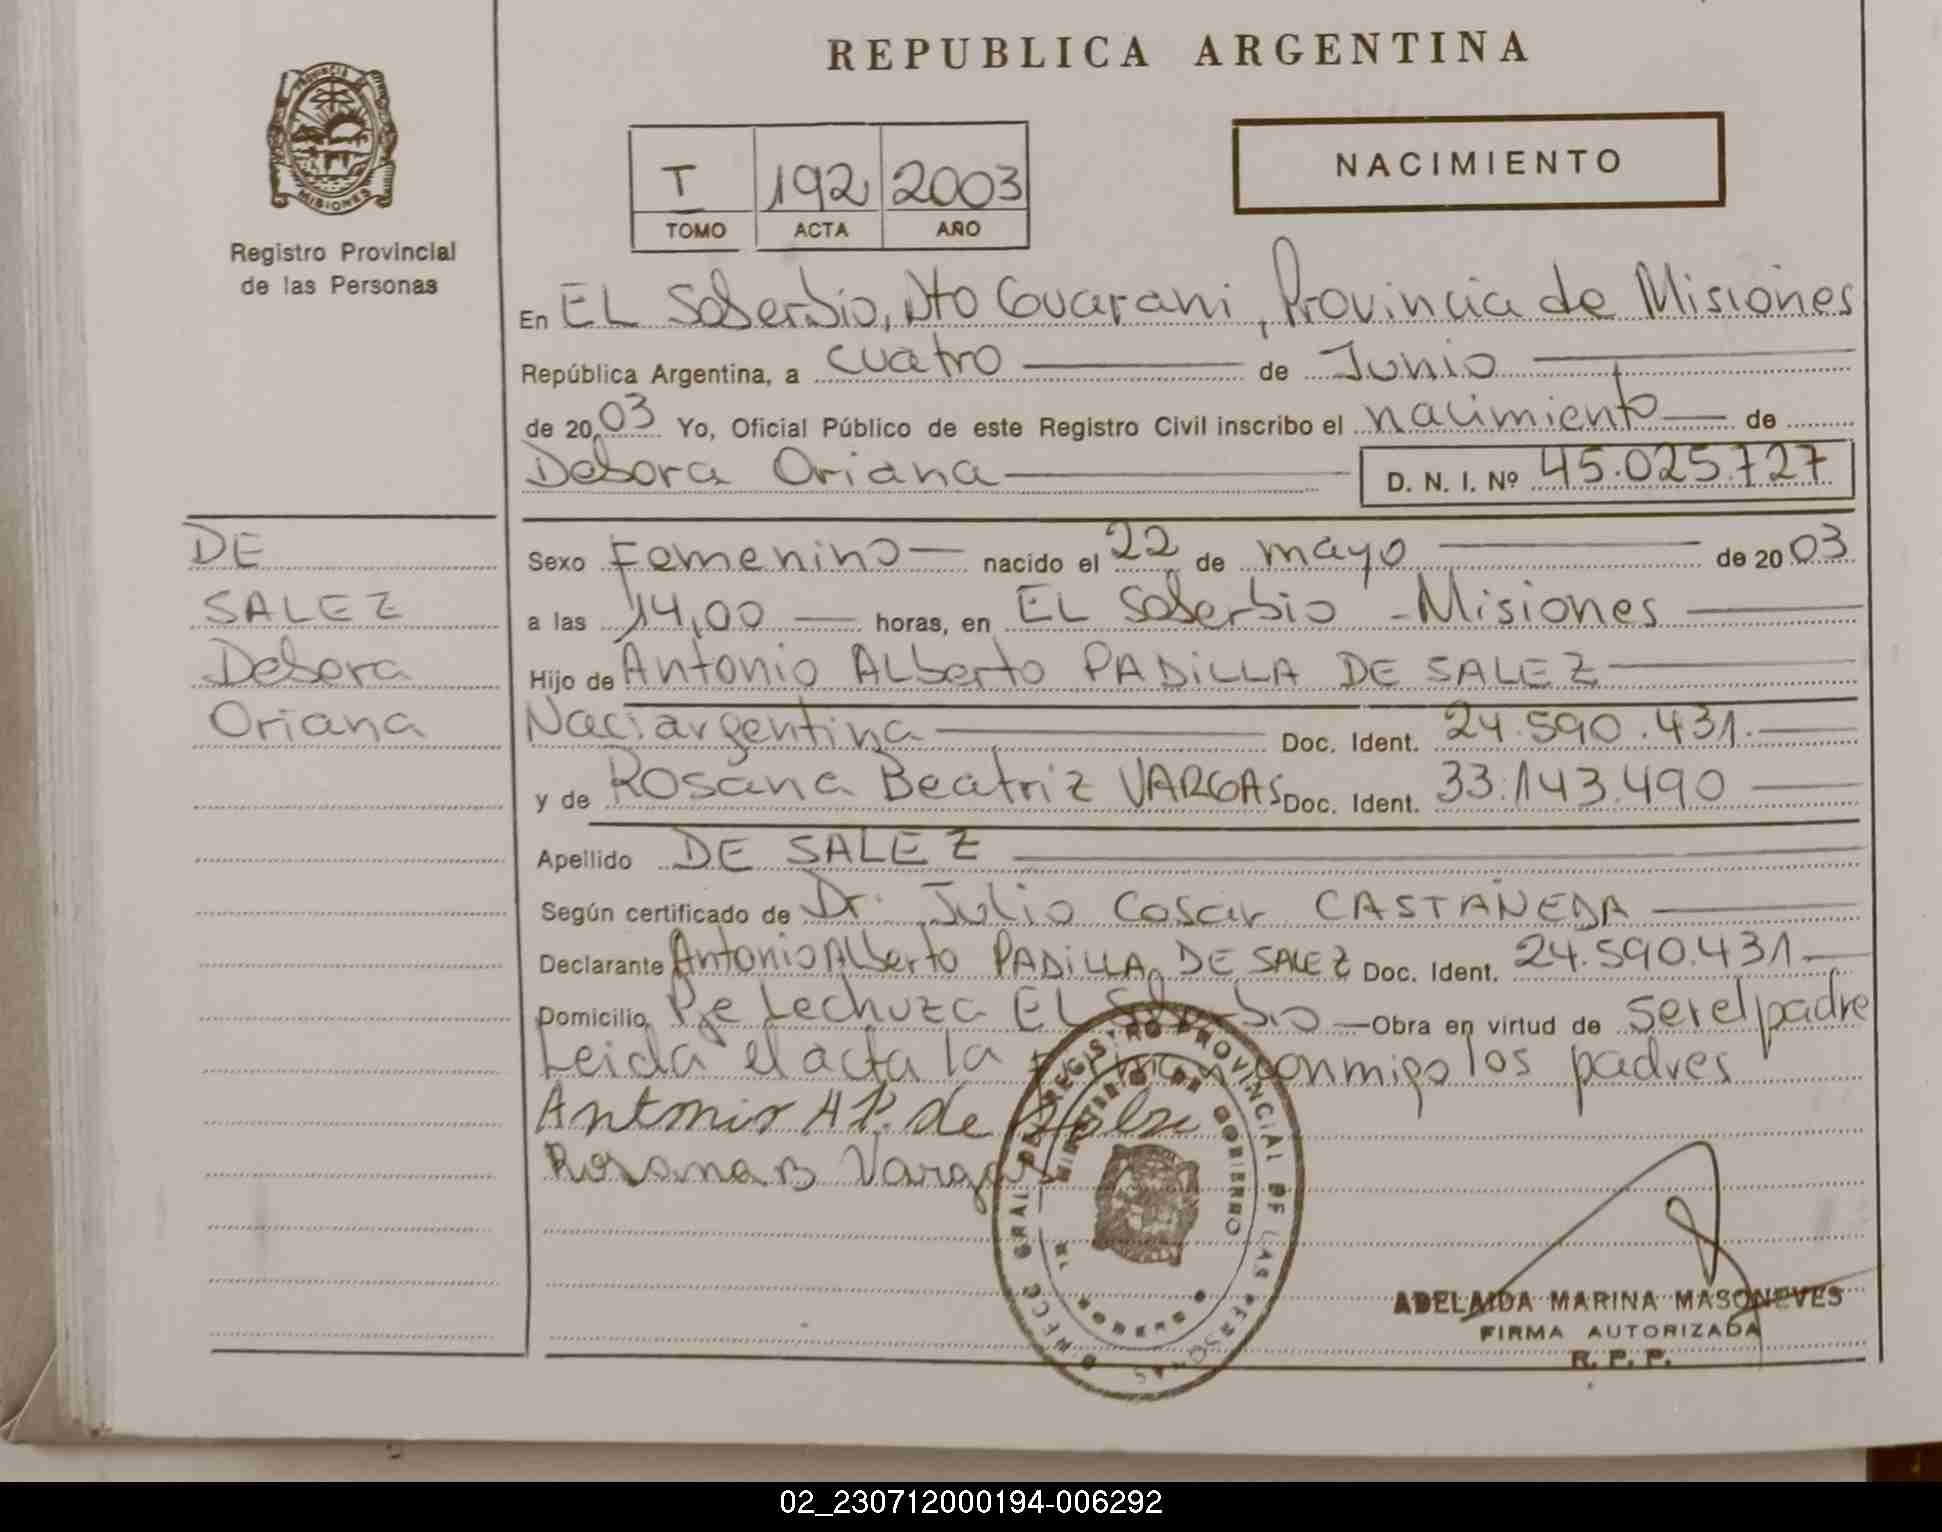 REPUBLICA ARGENTINA
PROVINCIA DE MISIONES
Registro Provincial
de las Personas
T 192 2003
TOMO ACTA AÑO
NACIMIENTO
En EL Soberbio, Dto Guarani, Provincia de Misiones
República Argentina, a cuatro de Junio
de 2003 Yo, Oficial Público de este Registro Civil inscribo el nacimiento de
Debora Oriana D. N. I. Nº 45.025.727
DE
SALEZ
Debora
Oriana
Sexo Femenino nacido el 22 de mayo de 2003
a las 14,00 horas, en EL Soberbio - Misiones
Hijo de Antonio ALberto PADiLLA DE SALEZ
Naci argentina Doc. Ident. 24.590.431.
y de Rosana Beatriz VARGAS Doc. Ident. 33.143.490
Apellido DE SALEZ
Según certificado de Dr. Julio Cesar CASTAÑEDA
Declarante Antonio ALberto PADiLLA DE SALEZ Doc. Ident. 24.590.431
Domicilio Pje Lechuza EL Soberbio Obra en virtud de ser el padre
Leida el acta la firman conmigo los padres
Antonio A P. de
Rosana B Vargas
DIRECC GRAL DEL REGISTRO PROVINCIAL DE LAS PERSONAS
MINISTERIO DE GOBIERNO
ADELAIDA MARINA MASONEVES
FIRMA AUTORIZADA
R. P. P.
02_230712000194-006292